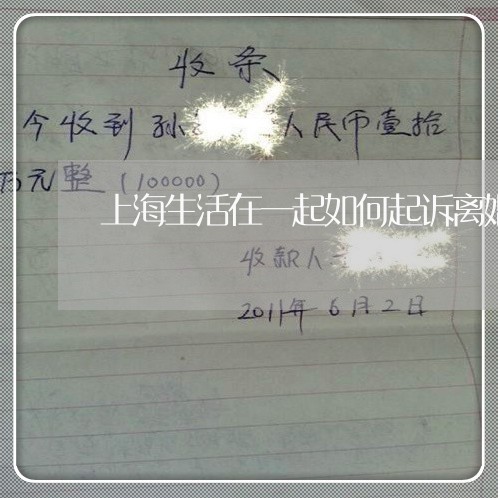 收条
今收到孙 人民币壹拾
万元整（100000）
上海生活在一起如何起诉离婚
收款人
2011年6月2日